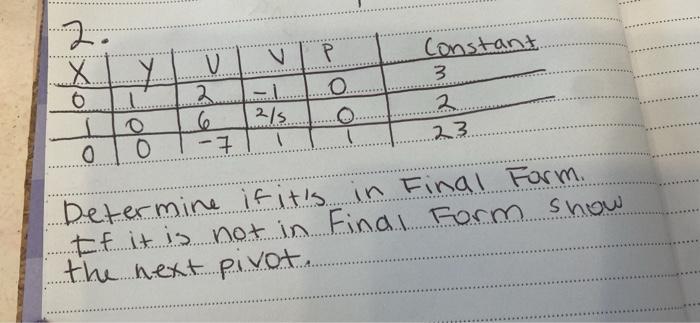 2.
X Y U V P Constant
0 1 2 -1 0 3
1 0 6 2/5 0 2
0 0 -7 1 1 23
Determine if it's in Final Form.
If it is not in Final Form show
the next pivot.